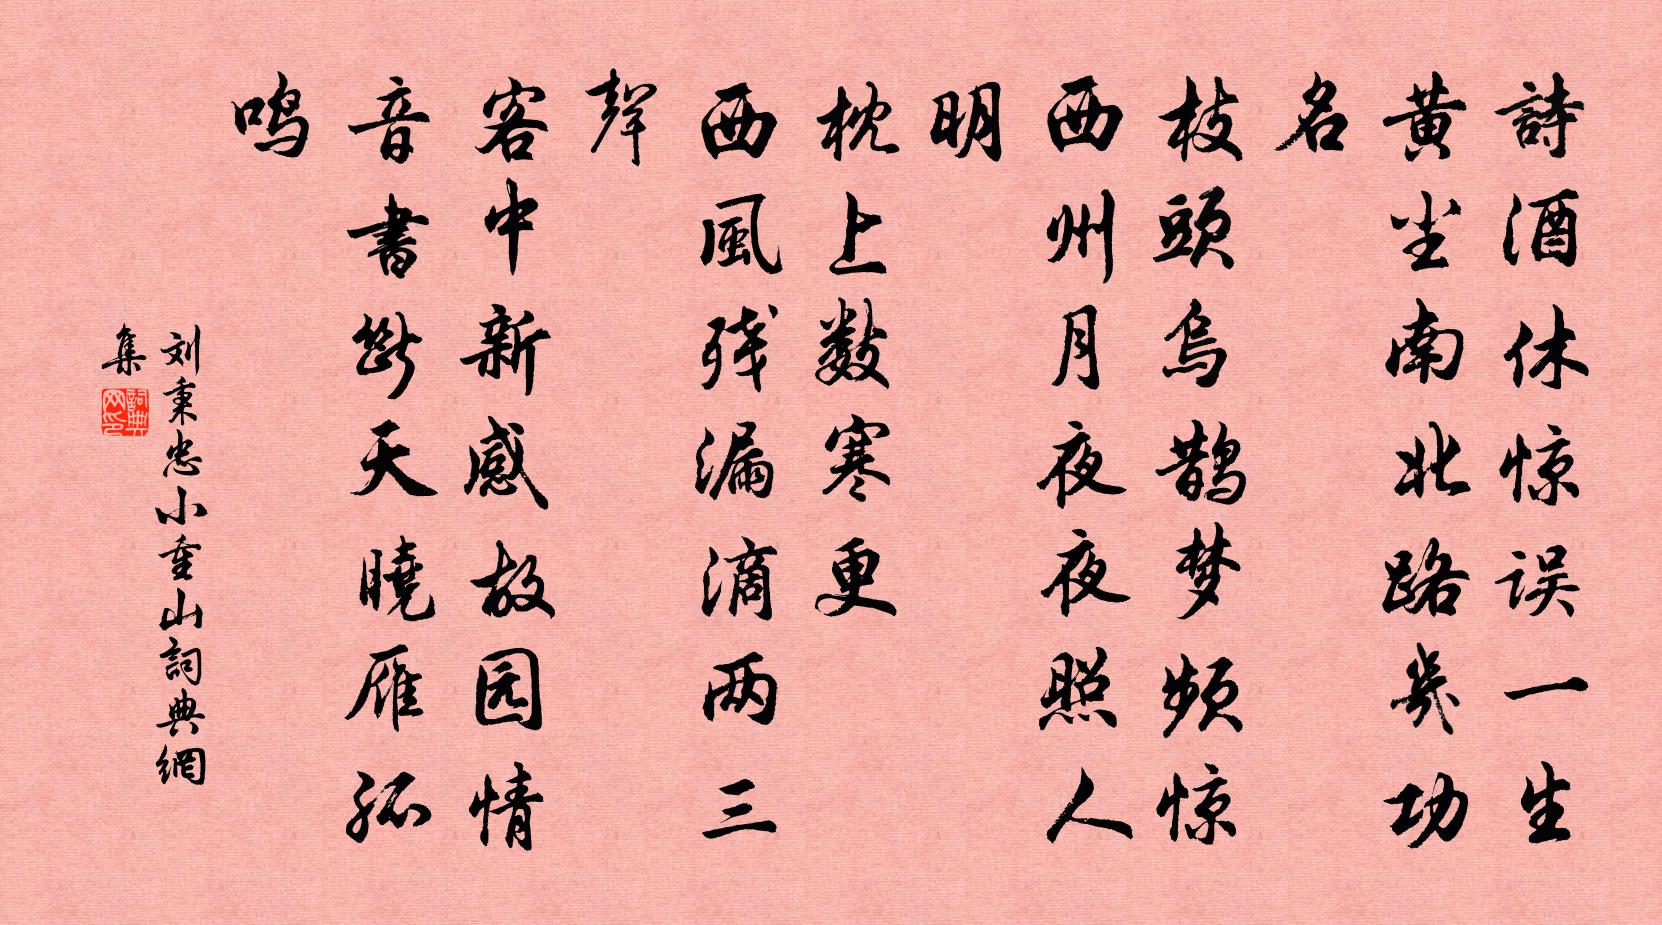 詩酒休惊误一生
黄尘南北路幾功
名
枝頭烏鹊梦频惊
西州月夜夜照人
明
枕上数寒更
西風残漏滴两三
聲
客中新感故园情
音書斷天曉雁孤
鸣
刘秉忠小重山詞典網
集
詞典
网印